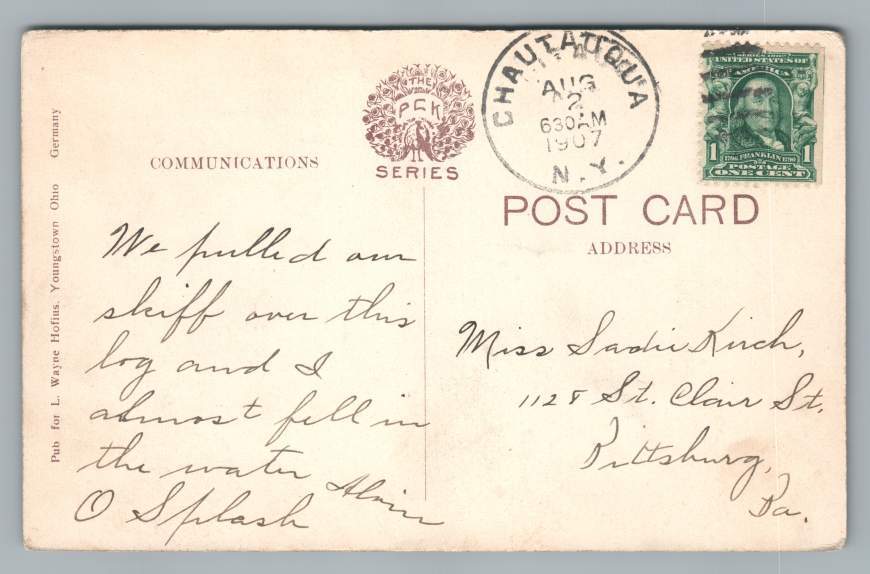 THE
PCK
SERIES
COMMUNICATIONS
CHAUTAUQUA
AUG
2
630AM
1907
N.Y.
SERIES 1902
UNITED STATES OF
AMERICA
1706 FRANKLIN 1790
1 POSTAGE 1
ONE CENT
POST CARD
ADDRESS
Pub for L. Wayne Hofius. Youngstown Ohio Germany
We pulled our
skiff over this
log and I
almost fell in
the water
O Splash
Miss Sadie Kirch,
1128 St. Clair St.
Pittsburg,
Pa.